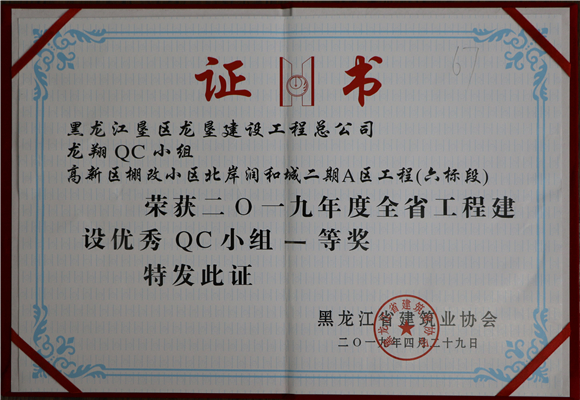 证书
67
黑龙江垦区龙垦建设工程总公司
龙翔QC小组
高新区棚改小区北岸润和城二期A区工程(六标段)
荣获二〇一九年度全省工程建
设优秀QC小组一等奖
特发此证
黑龙江省建筑业协会
二〇一九年四月二十九日